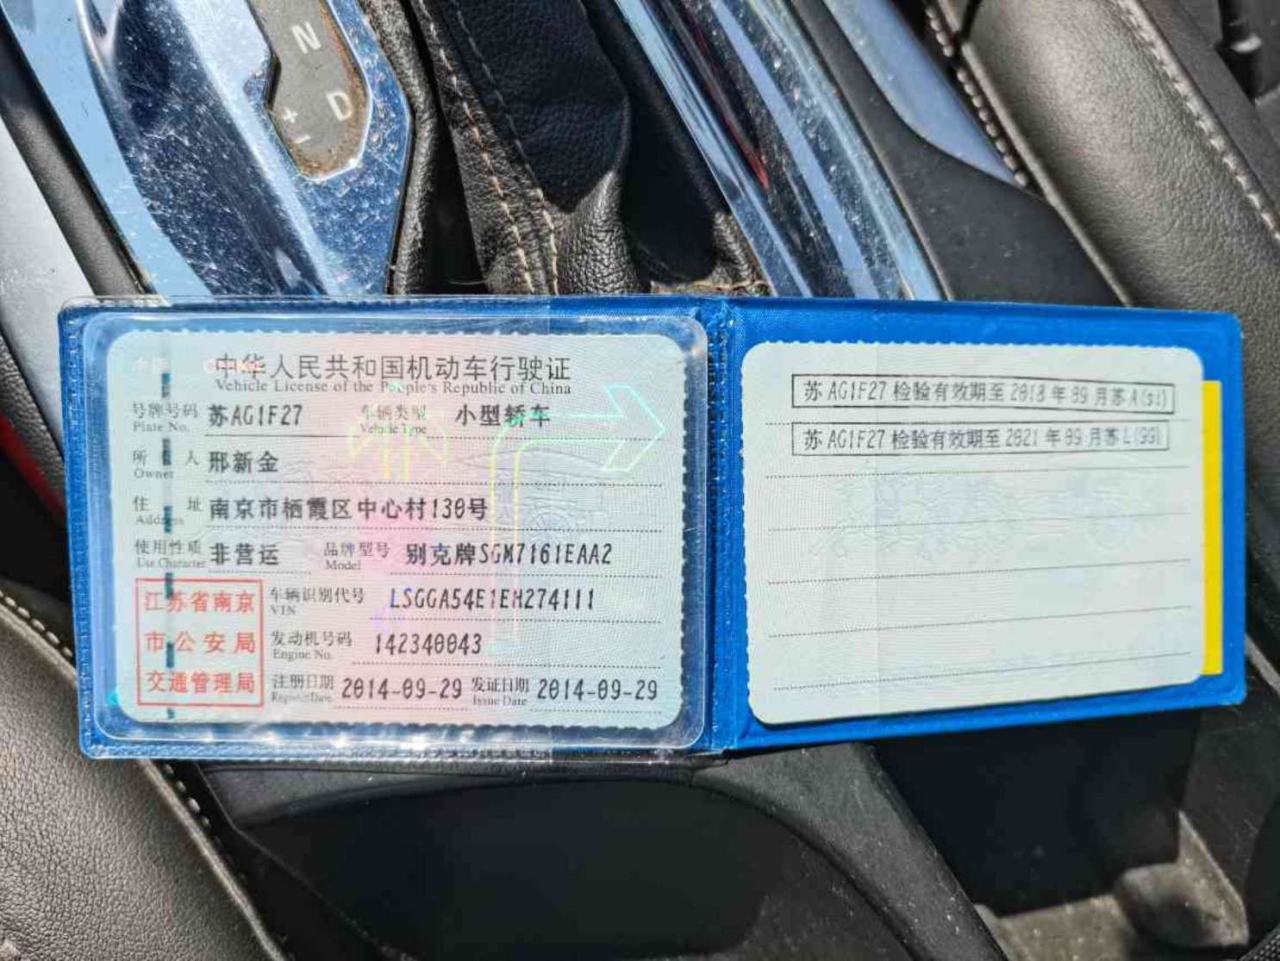 N
D
+
−
中华人民共和国机动车行驶证
Vehicle License of the People's Republic of China
号牌号码 苏AG1F27 车辆类型 小型轿车
Plate No. Vehicle Type
所有人 邢新金
Owner
住址 南京市栖霞区中心村130号
Address
使用性质 非营运 品牌型号 别克牌SGM7161EAA2
Use Character Model
江苏省南京
市公安局
交通管理局
车辆识别代号 LSGGA54E1EH274111
VIN
发动机号码 142340043
Engine No.
注册日期 2014-09-29 发证日期 2014-09-29
Register Date Issue Date
苏AG1F27检验有效期至2018年09月苏A(s1)
苏AG1F27检验有效期至2021年09月苏L(99)